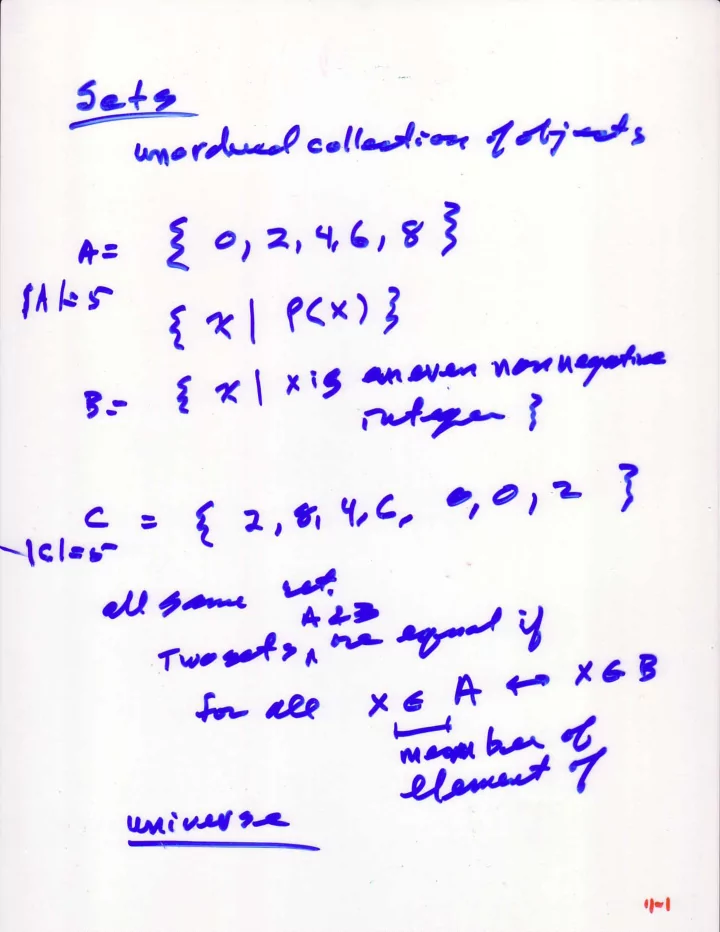 Sets
unordered collection of objects
A = { 0, 2, 4, 6, 8 }
|A| = 5
{ x | P(x) }
B = { x | x is an even non negative
integer }
C = { 2, 8, 4, 6, 0, 0, 2 }
|C| = 5
all same set.
A & B
Two sets, ^ are equal if
for all x ∈ A ↔ x ∈ B
member of
element of
universe
11-1